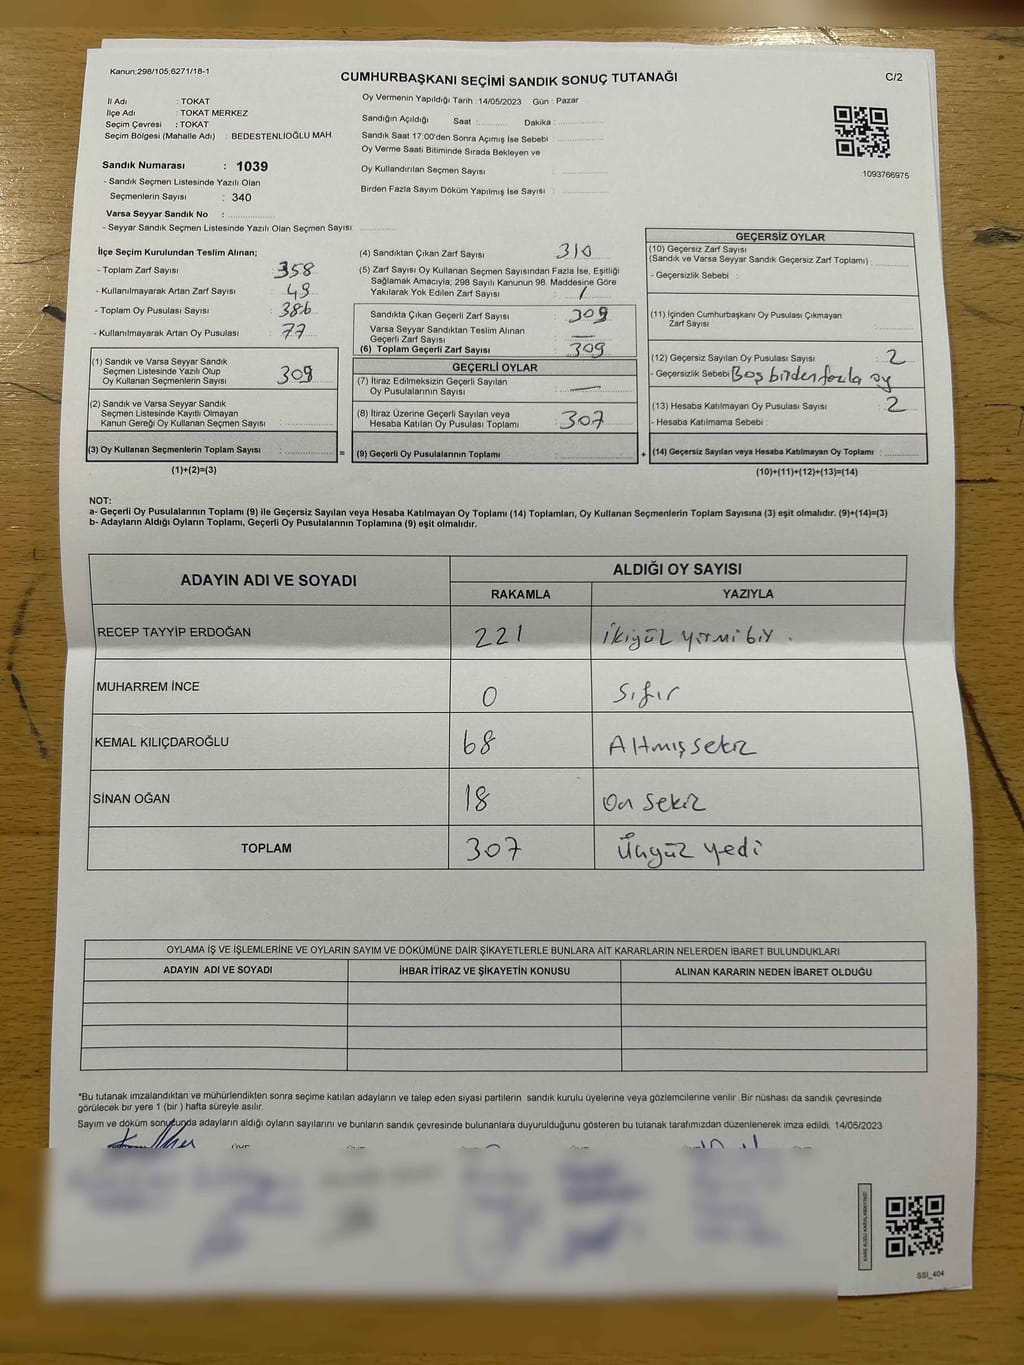 Kanun;298/105,6271/18-1
CUMHURBAŞKANI SEÇİMİ SANDIK SONUÇ TUTANAĞI
C/2
İl Adı : TOKAT
İlçe Adı : TOKAT MERKEZ
Seçim Çevresi : TOKAT
Seçim Bölgesi (Mahalle Adı) : BEDESTENLİOĞLU MAH.
Sandık Numarası : 1039
- Sandık Seçmen Listesinde Yazılı Olan
Seçmenlerin Sayısı : 340
Varsa Seyyar Sandık No :
- Seyyar Sandık Seçmen Listesinde Yazılı Olan Seçmen Sayısı:
Oy Vermenin Yapıldığı Tarih : 14/05/2023 Gün : Pazar
Sandığın Açıldığı Saat : Dakika :
Sandık Saat 17:00'den Sonra Açımış İse Sebebi :
Oy Verme Saati Bitiminde Sırada Bekleyen ve
Oy Kullandırılan Seçmen Sayısı :
Birden Fazla Sayım Döküm Yapılmış İse Sayısı :
1093766975
İlçe Seçim Kurulundan Teslim Alınan;
- Toplam Zarf Sayısı : 358
- Kullanılmayarak Artan Zarf Sayısı : 49
- Toplam Oy Pusulası Sayısı : 386
- Kullanılmayarak Artan Oy Pusulası : 77
(1) Sandık ve Varsa Seyyar Sandık
Seçmen Listesinde Yazılı Olup
Oy Kullanan Seçmenlerin Sayısı : 309
(2) Sandık ve Varsa Seyyar Sandık
Seçmen Listesinde Kayıtlı Olmayan
Kanun Gereği Oy Kullanan Seçmen Sayısı :
(3) Oy Kullanan Seçmenlerin Toplam Sayısı :
(1)+(2)=(3)
=
(4) Sandıktan Çıkan Zarf Sayısı : 310
(5) Zarf Sayısı Oy Kullanan Seçmen Sayısından Fazla İse, Eşitliği
Sağlamak Amacıyla; 298 Sayılı Kanunun 98. Maddesine Göre
Yakılarak Yok Edilen Zarf Sayısı : 1
Sandıkta Çıkan Geçerli Zarf Sayısı : 309
Varsa Seyyar Sandıktan Teslim Alınan
Geçerli Zarf Sayısı : —
(6) Toplam Geçerli Zarf Sayısı : 309
GEÇERLİ OYLAR
(7) İtiraz Edilmeksizin Geçerli Sayılan
Oy Pusulalarının Sayısı : —
(8) İtiraz Üzerine Geçerli Sayılan veya
Hesaba Katılan Oy Pusulası Toplamı : 307
(9) Geçerli Oy Pusulalarının Toplamı :
+
GEÇERSİZ OYLAR
(10) Geçersiz Zarf Sayısı
(Sandık ve Varsa Seyyar Sandık Geçersiz Zarf Toplamı) :
- Geçersizlik Sebebi :
(11) İçinden Cumhurbaşkanı Oy Pusulası Çıkmayan
Zarf Sayısı :
(12) Geçersiz Sayılan Oy Pusulası Sayısı : 2
- Geçersizlik Sebebi Boş birden fazla oy
(13) Hesaba Katılmayan Oy Pusulası Sayısı : 2
- Hesaba Katılmama Sebebi :
(14) Geçersiz Sayılan veya Hesaba Katılmayan Oy Toplamı :
(10)+(11)+(12)+(13)=(14)
NOT:
a- Geçerli Oy Pusulalarının Toplamı (9) ile Geçersiz Sayılan veya Hesaba Katılmayan Oy Toplamı (14) Toplamları, Oy Kullanan Seçmenlerin Toplam Sayısına (3) eşit olmalıdır. (9)+(14)=(3)
b- Adayların Aldığı Oyların Toplamı, Geçerli Oy Pusulalarının Toplamına (9) eşit olmalıdır.
ADAYIN ADI VE SOYADI
ALDIĞI OY SAYISI
RAKAMLA YAZIYLA
RECEP TAYYİP ERDOĞAN 221 ikiyüz yirmi bir .
MUHARREM İNCE 0 sıfır
KEMAL KILIÇDAROĞLU 68 Altmışsekiz
SİNAN OĞAN 18 on sekiz
TOPLAM 307 Üçyüz yedi
OYLAMA İŞ VE İŞLEMLERİNE VE OYLARIN SAYIM VE DÖKÜMÜNE DAİR ŞİKAYETLERLE BUNLARA AİT KARARLARIN NELERDEN İBARET BULUNDUKLARI
ADAYIN ADI VE SOYADI İHBAR İTİRAZ VE ŞİKAYETİN KONUSU ALINAN KARARIN NEDEN İBARET OLDUĞU
*Bu tutanak imzalandıktan ve mühürlendikten sonra seçime katılan adayların ve talep eden siyasi partilerin sandık kurulu üyelerine veya gözlemcilerine verilir .Bir nüshası da sandık çevresinde
görülecek bir yere 1 (bir ) hafta süreyle asılır.
Sayım ve döküm sonucunda adayların aldığı oyların sayılarını ve bunların sandık çevresinde bulunanlara duyurulduğunu gösteren bu tutanak tarafımızdan düzenlenerek imza edildi. 14/05/2023
KARE KODU KARALAMAYINIZ!
SSI_404